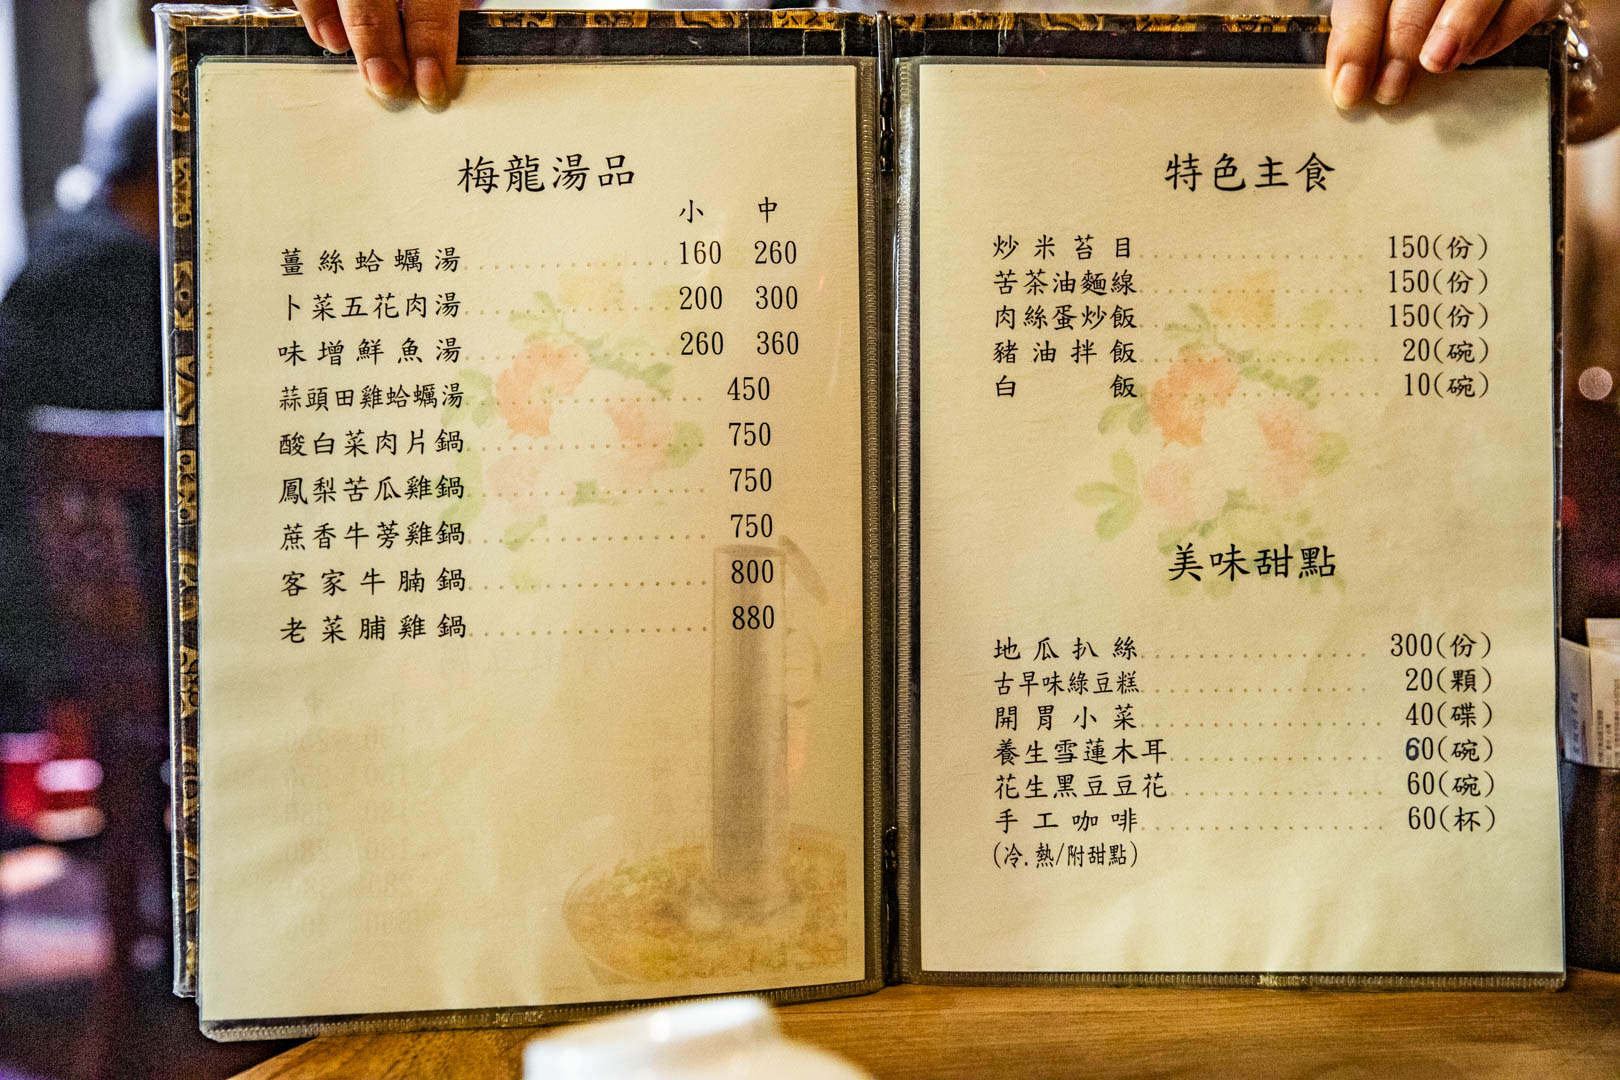 梅龍湯品
小 中
薑絲蛤蠣湯 160 260
卜菜五花肉湯 200 300
味增鮮魚湯 260 360
蒜頭田雞蛤蠣湯 450
酸白菜肉片鍋 750
鳳梨苦瓜雞鍋 750
蔗香牛蒡雞鍋 750
客家牛腩鍋 800
老菜脯雞鍋 880
特色主食
炒米苔目 150(份)
苦茶油麵線 150(份)
肉絲蛋炒飯 150(份)
豬油拌飯 20(碗)
白飯 10(碗)
美味甜點
地瓜扒絲 300(份)
古早味綠豆糕 20(顆)
開胃小菜 40(碟)
養生雪蓮木耳 60(碗)
花生黑豆豆花 60(碗)
手工咖啡 60(杯)
(冷.熱/附甜點)